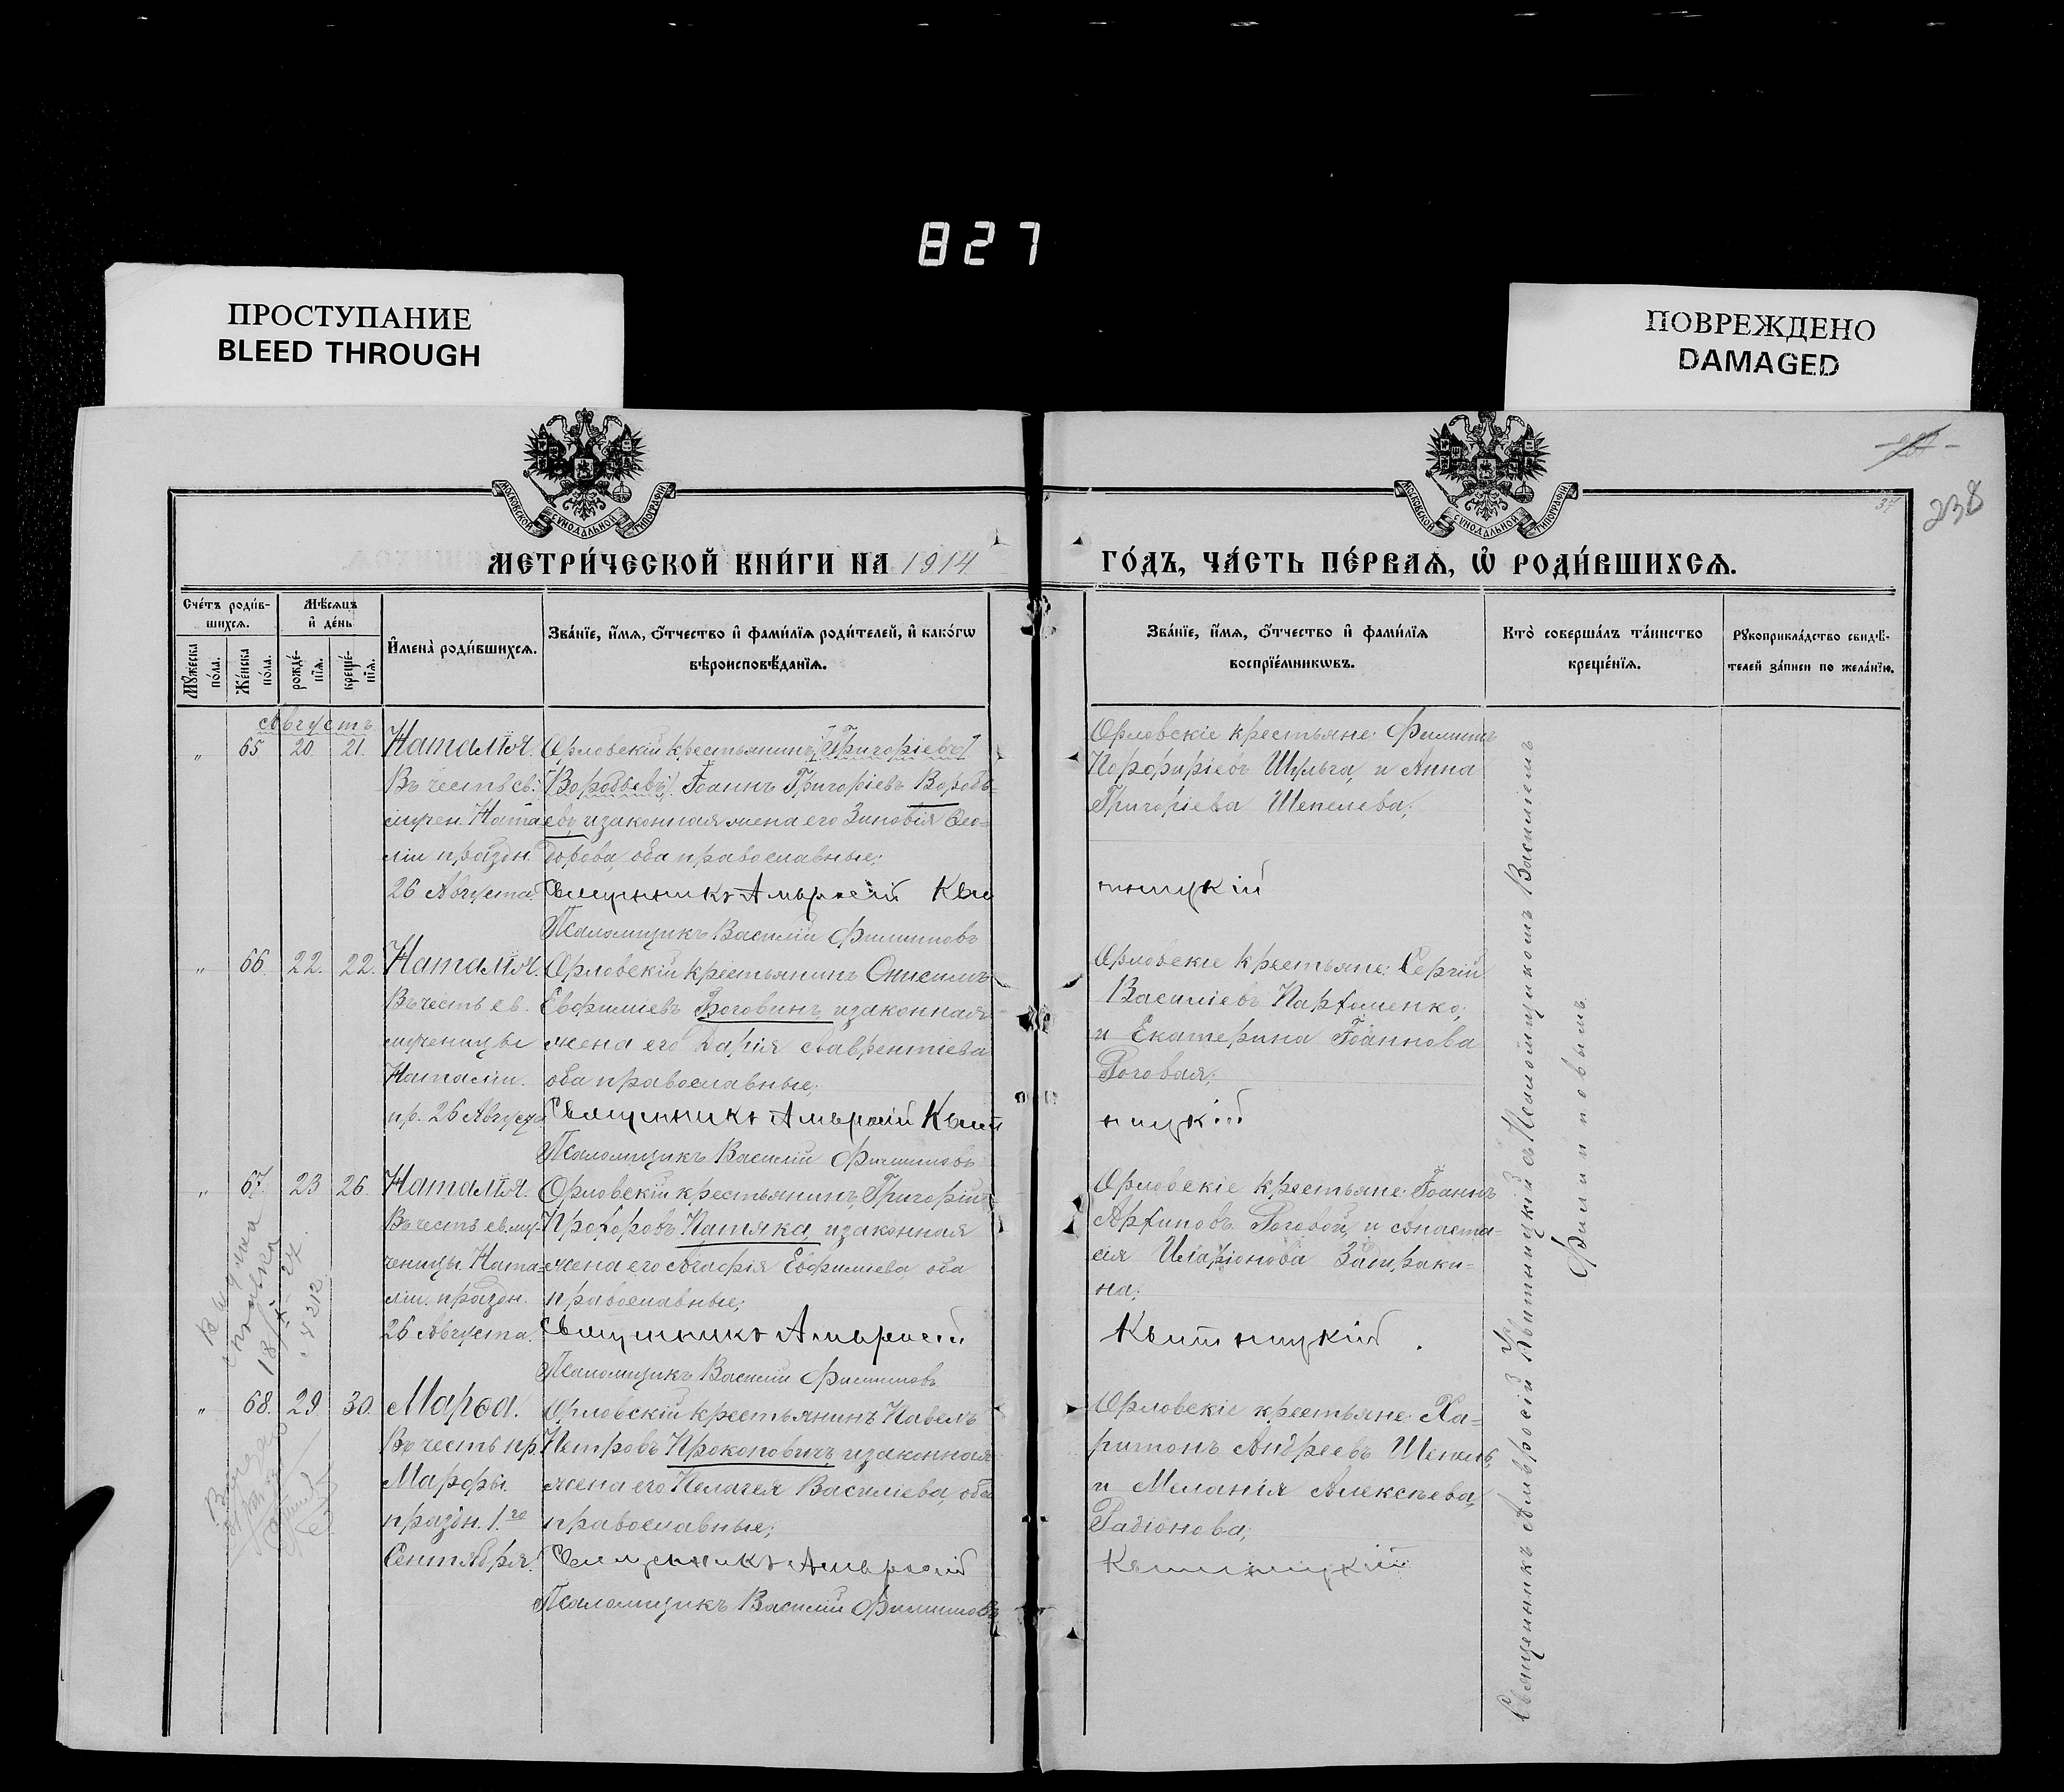 827
ПРОСТУПАНИЕ
BLEED THROUGH
ПОВРЕЖДЕНО
DAMAGED
МОСКОВСКОЙ СѴНОДАЛЬНОЙ ТИПОГРАФІИ
МОСКОВСКОЙ СѴНОДАЛЬНОЙ ТИПОГРАФІИ
37
238
МЕТРИ́ЧЕСКОЙ КНИ́ГИ НА 1914
ГО́ДЪ, ЧА́СТЬ ПЕ́РВАѦ, Ѽ РОДИ́ВШИХСѦ.
Сче́тъ роди́в-
шихсѧ.
Мꙋ́жеска по́ла.
Же́нска по́ла.
Мѣ́сѧцъ
и҆ де́нь
рожде́-
нїѧ.
креще́-
нїѧ.
И҆мена̀ роди́вшихсѧ.
Зва́нїе, и҆́мѧ, ѻ҆́тчество и҆ фами́лїѧ роди́телей, и҆ како́гѡ
вѣроисповѣ́данїѧ.
Зва́нїе, и҆́мѧ, ѻ҆́тчество и҆ фами́лїѧ
воспрїе́мникѡвъ.
Кто̀ соверша́лъ та́инство
креще́нїѧ.
Рꙋкоприкла́дство свидѣ́-
телей за́писи по жела́нїю.
Августъ
" 65. 20. 21. Наталія.
Въ честь св.
мучен. Ната-
ліи праздн.
26 Августа.
Орловскій крестьянинъ [Григоріевъ]
[Воробьевъ] Іоаннъ Григоріевъ Воробь-
евъ, и законная жена его Зиновія Ѳео-
дорова, оба православные;
Священникъ Амвросій Кви
Псаломщикъ Василій Филипповъ
Орловскіе крестьяне: Филиппъ
Порфиріевъ Шульга, и Анна
Григоріева Шепелева;
тницкій
" 66. 22. 22. Наталія.
Въ честь св.
мученицы
Наталіи.
пр. 26 Августа
Орловскій крестьянинъ Онисимъ
Евфиміевъ Роговинъ, и законная
жена его Дарія Лаврентіева
оба православные;
Священникъ Амвросій Квит
Псаломщикъ Василій Филипповъ
Орловскіе крестьяне: Сергій
Василіевъ Пархоменко;
и Екатерина Іоаннова
Роговая;
ницкій
" 67. 23 26. Наталія.
Въ честь св. му-
ченицы Ната-
ліи. праздн.
26 Августа.
Орловскій крестьянинъ, Григорій
Прохоровъ Патяка, и законная
жена его Агафія Евфиміева, оба
православные;
Священникъ Амвросій
Псаломщикъ Василій Филипповъ
Орловскіе крестьяне: Іоаннъ
Архиповъ Роговой, и Анаста-
сія Иларіонова Задираки-
на;
Квитницкій.
" 68. 29. 30. Марѳа.
Въ честь пр.
Марфы.
праздн. 1.го
Сентября.
Орловскій крестьянинъ Павелъ
Петровъ Прокоповичъ, и законная
жена его Пелагея Василіева, оба
православные;
Священникъ Амвросій
Псаломщикъ Василій Филипповъ
Орловскіе крестьяне: Ха-
ритонъ Андреевъ Шепель,
и Меланія Алексѣева,
Радіонова;
Квитницкій
Священникъ Амвросій Квитницкій съ Псаломщикомъ Василіемъ
Филипповымъ